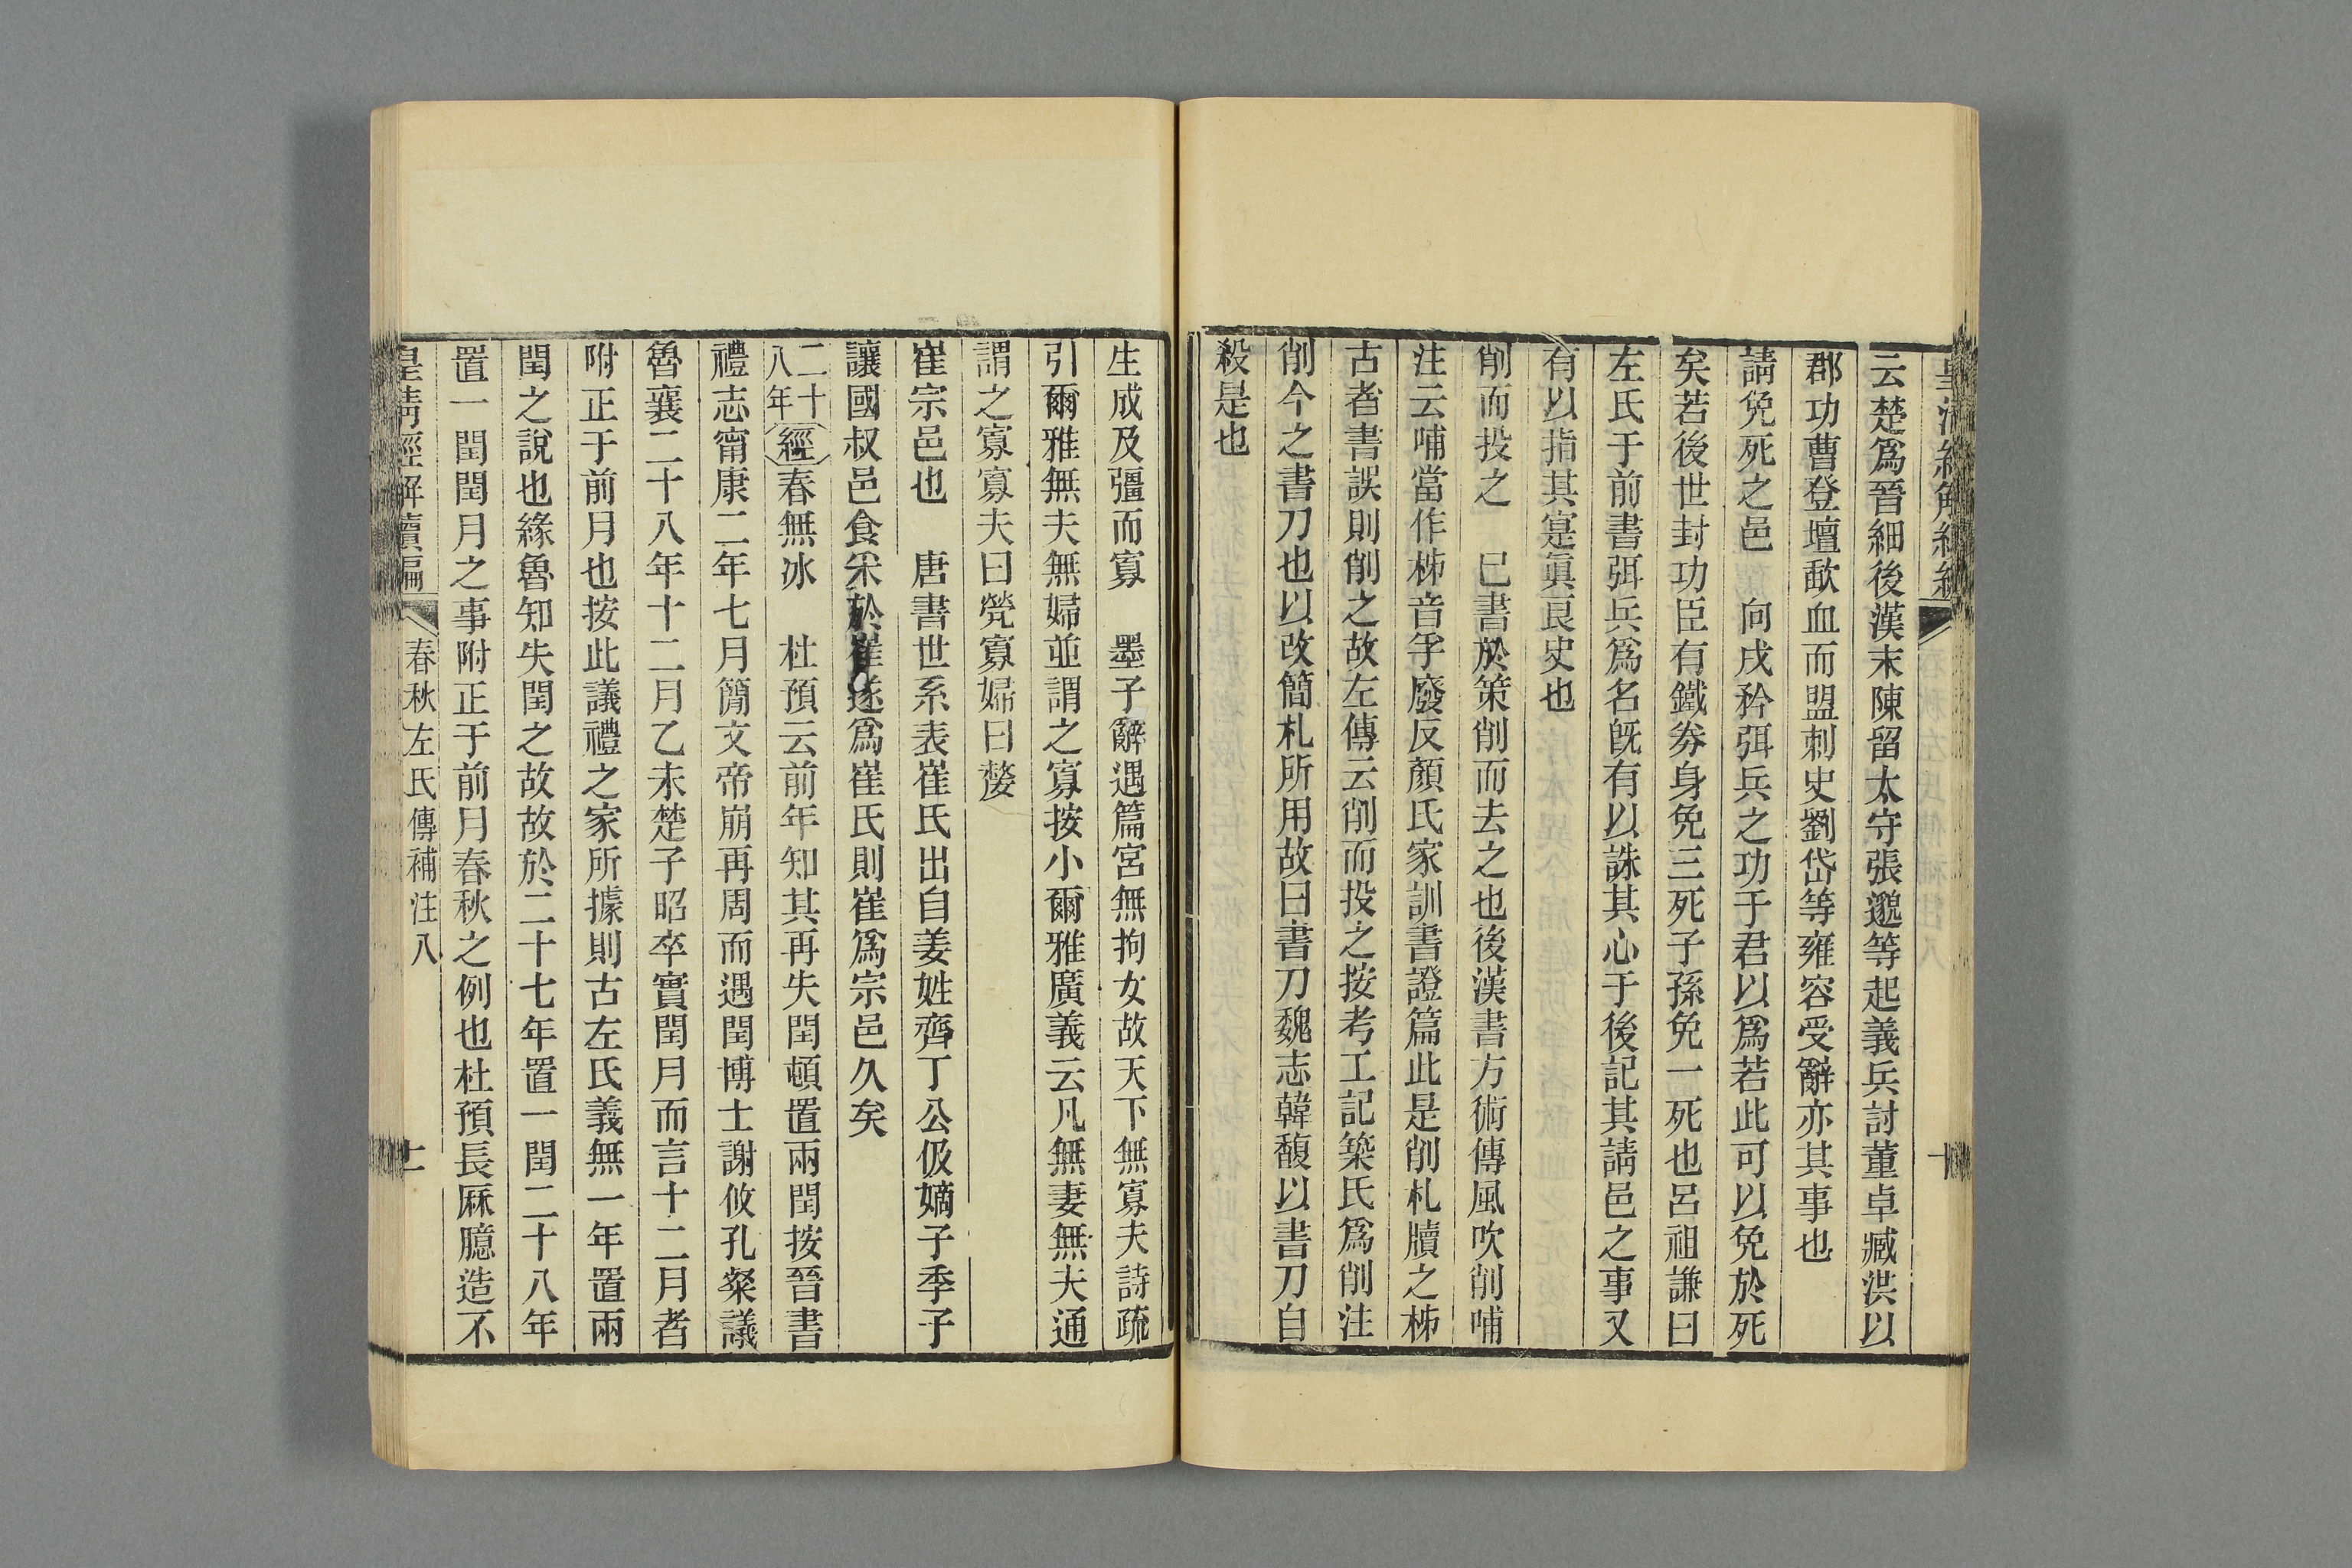 云楚爲晉細後漢末陳留太守張邈等起義兵討董卓臧洪以
郡功曹登壇歃血而盟刺史劉岱等雍容受辭亦其事也
請免死之邑　向戌矜弭兵之功于君以爲若此可以免於死
矣若後世封功臣有鐵券身免三死子孫免一死也呂祖謙曰
左氏于前書弭兵爲名旣有以誅其心于後記其請邑之事又
有以指其寔眞良史也
削而投之　已書於策削而去之也後漢書方術傳風吹削哺
注云哺當作柹音孚廢反顏氏家訓書證篇此是削札牘之柹
古者書誤則削之故左傳云削而投之按考工記築氏爲削注
削今之書刀也以改簡札所用故曰書刀魏志韓馥以書刀自
殺是也
生成及彊而寡　墨子辭過篇宮無拘女故天下無寡夫詩疏
引爾雅無夫無婦並謂之寡按小爾雅廣義云凡無妻無夫通
謂之寡寡夫曰煢寡婦曰嫠
崔宗邑也　唐書世系表崔氏出自姜姓齊丁公伋嫡子季子
讓國叔邑食采於崔遂爲崔氏則崔爲宗邑久矣
二十八年經春無冰　杜預云前年知其再失閏頓置兩閏按晉書
禮志甯康二年七月簡文帝崩再周而遇閏博士謝攸孔粲議
魯襄二十八年十二月乙未楚子昭卒實閏月而言十二月者
附正于前月也按此議禮之家所據則古左氏義無一年置兩
閏之說也緣魯知失閏之故故於二十七年置一閏二十八年
置一閏閏月之事附正于前月春秋之例也杜預長厤臆造不
皇清經解續編　春秋左氏傳補注八